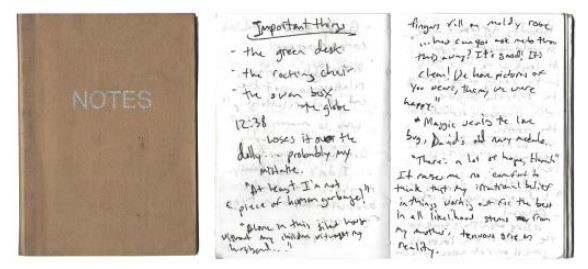 NOTES
Important things
- the green desk
- the rocking chair
- the swan box
the globe
12:38
loses it over the
dolly... probably my
mistake.
"At least I'm not
a piece of human garbage!"
"Alone in this filed house
without my children without my
husband..."
fingers roll on moldy rose
"...how can you ask me to throw
this away? It's good! It's
clean! We have pictures of
you near, there, we were
happy."
* Maggie the love
bug, David's old navy medals..
"There's a lot of hope, though"
It raises me no comfort to
think that my irrational belief
in things working out for the best
in all likelihood stems from
my mother's tenuous grip on
reality.